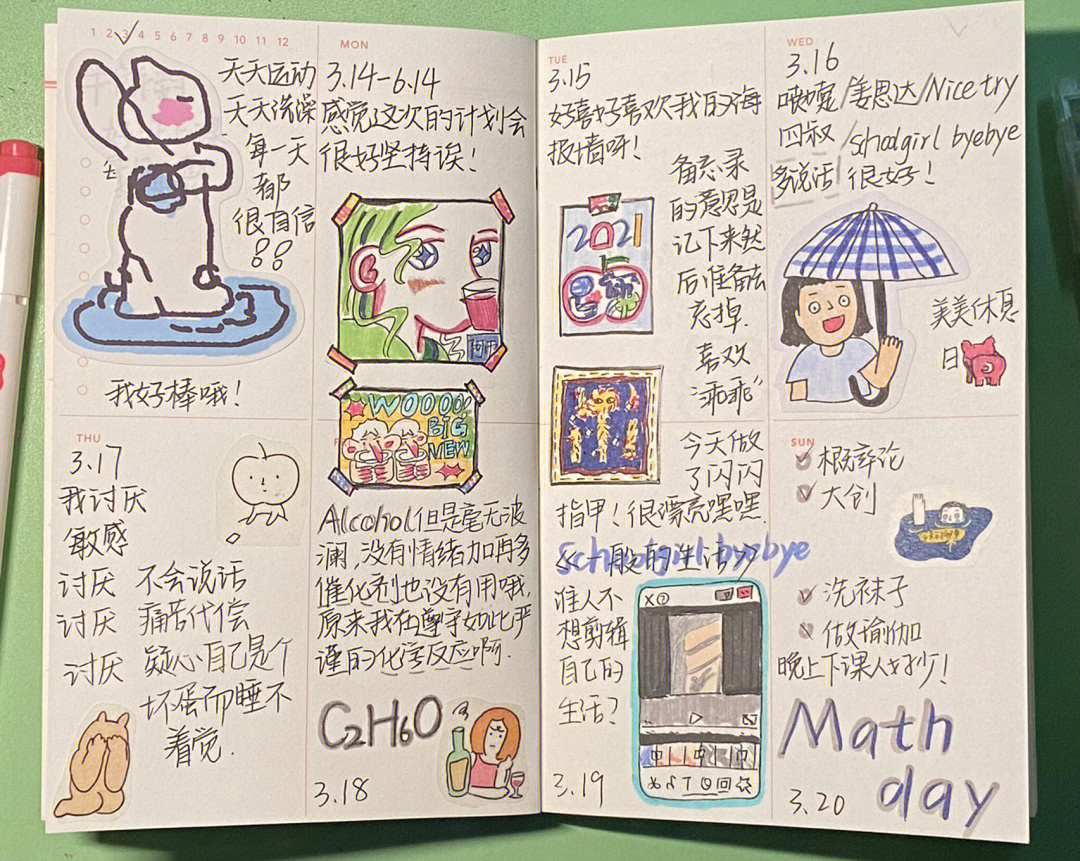 1 2 3 4 5 6 7 8 9 10 11 12
天天运动
天天洗澡
每一天
都
很自信
我好棒哦!
MON
3.14-6.14
感觉这次的计划会
很好坚持诶!
WOOOO!
BIG
NEW
TUE
3.15
好喜好喜欢我的海
报墙呀!
备忘录
的意思是
记下来然
后准备去
忘掉.
喜欢
“乖乖”
2021
今天做
了闪闪
指甲!很漂亮嘿嘿.
WED
3.16
姜思达/Nice try
四叔/schoolgirl byebye
多说话 很好!
美美休息
日
THU
3.17
我讨厌
敏感
讨厌 不会说话
讨厌 痛苦代偿
讨厌 疑心自己是个
坏蛋而睡不
着觉.
Alcohol但是毫无波
澜,没有情绪加再多
催化剂也没有用哦,
原来我在遵守如此严
谨的化学反应啊.
C2H6O
3.18
schoolgirl byebye
《一般的生活》
谁人不
想剪辑
自己的
生活?
3.19
SUN
概辩论
大创
洗袜子
做瑜伽
晚上下课人好少!
Math
day
3.20